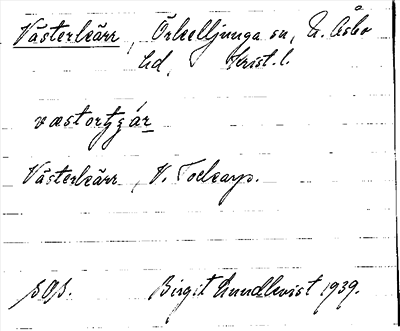 Västerkärr, Örkelljunga sn, N. Åsbo
hd, Krist. l.
væstortʒár
Västerkärr, V. Torkarp.
sgs. Birgit Lundkvist 1939.